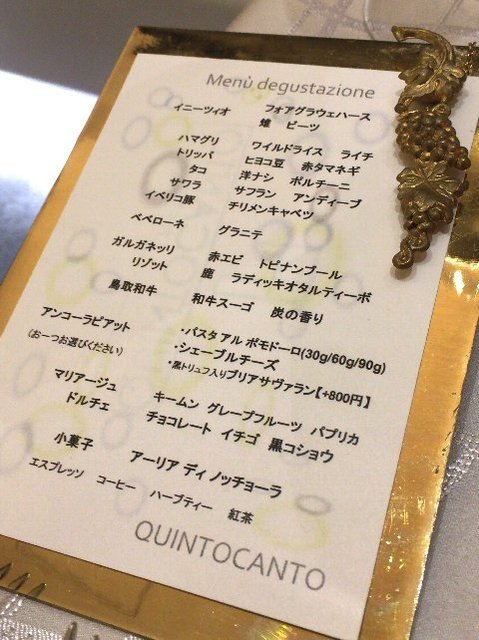 Menù degustazione
イニーツィオ フォアグラウェハース
煌 ビーツ
ハマグリ ワイルドライス ライチ
トリッパ ヒヨコ豆 赤タマネギ
タコ 洋ナシ ポルチーニ
サワラ サフラン アンディーブ
イベリコ豚 チリメンキャベツ
ペペローネ グラニテ
ガルガネッリ 赤エビ トピナンブール
リゾット 鹿 ラディッキオタルティーボ
鳥取和牛 和牛スーゴ 炭の香り
アンコーラピアット ・パスタ アル ポモドーロ(30g/60g/90g)
(お一つお選びください) ・シェーブルチーズ
・黒トリュフ入りブリアサヴァラン【+800円】
マリアージュ キームン グレープフルーツ パプリカ
ドルチェ チョコレート イチゴ 黒コショウ
小菓子 アーリア ディ ノッチョーラ
エスプレッソ コーヒー ハーブティー 紅茶
QUINTOCANTO